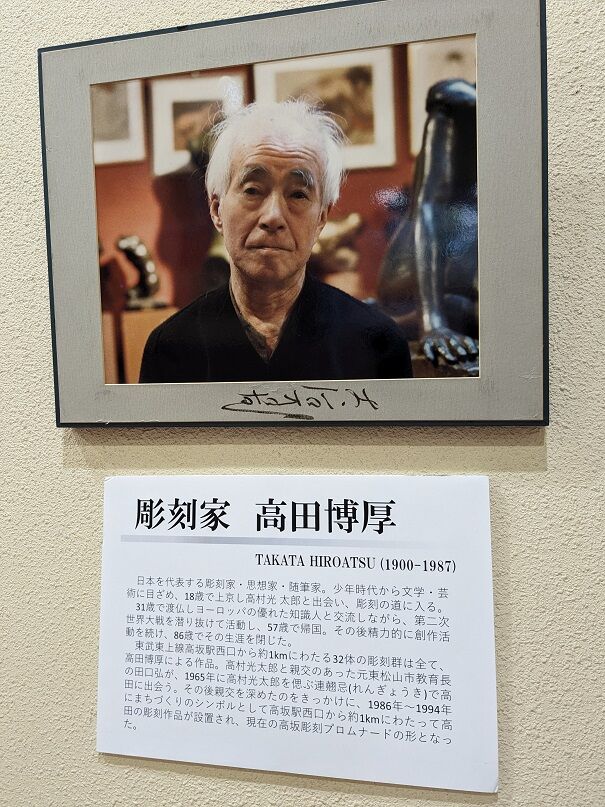 H. Takata
彫刻家 高田博厚
TAKATA HIROATSU (1900-1987)
日本を代表する彫刻家・思想家・随筆家。少年時代から文学・芸
術に目ざめ、18歳で上京し高村光 太郎と出会い、彫刻の道に入る。
31歳で渡仏しヨーロッパの優れた知識人と交流しながら、第二次
世界大戦を潜り抜けて活動し、57歳で帰国。その後精力的に創作活
動を続け、86歳でその生涯を閉じた。
東武東上線高坂駅西口から約1kmにわたる32体の彫刻群は全て、
高田博厚による作品。高村光太郎と親交のあった元東松山市教育長
の田口弘が、1965年に高村光太郎を偲ぶ連翹忌(れんぎょうき)で高
田に出会う。その後親交を深めたのをきっかけに、1986年～1994年
にまちづくりのシンボルとして高坂駅西口から約1kmにわたって高
田の彫刻作品が設置され、現在の高坂彫刻プロムナードの形となっ
た。